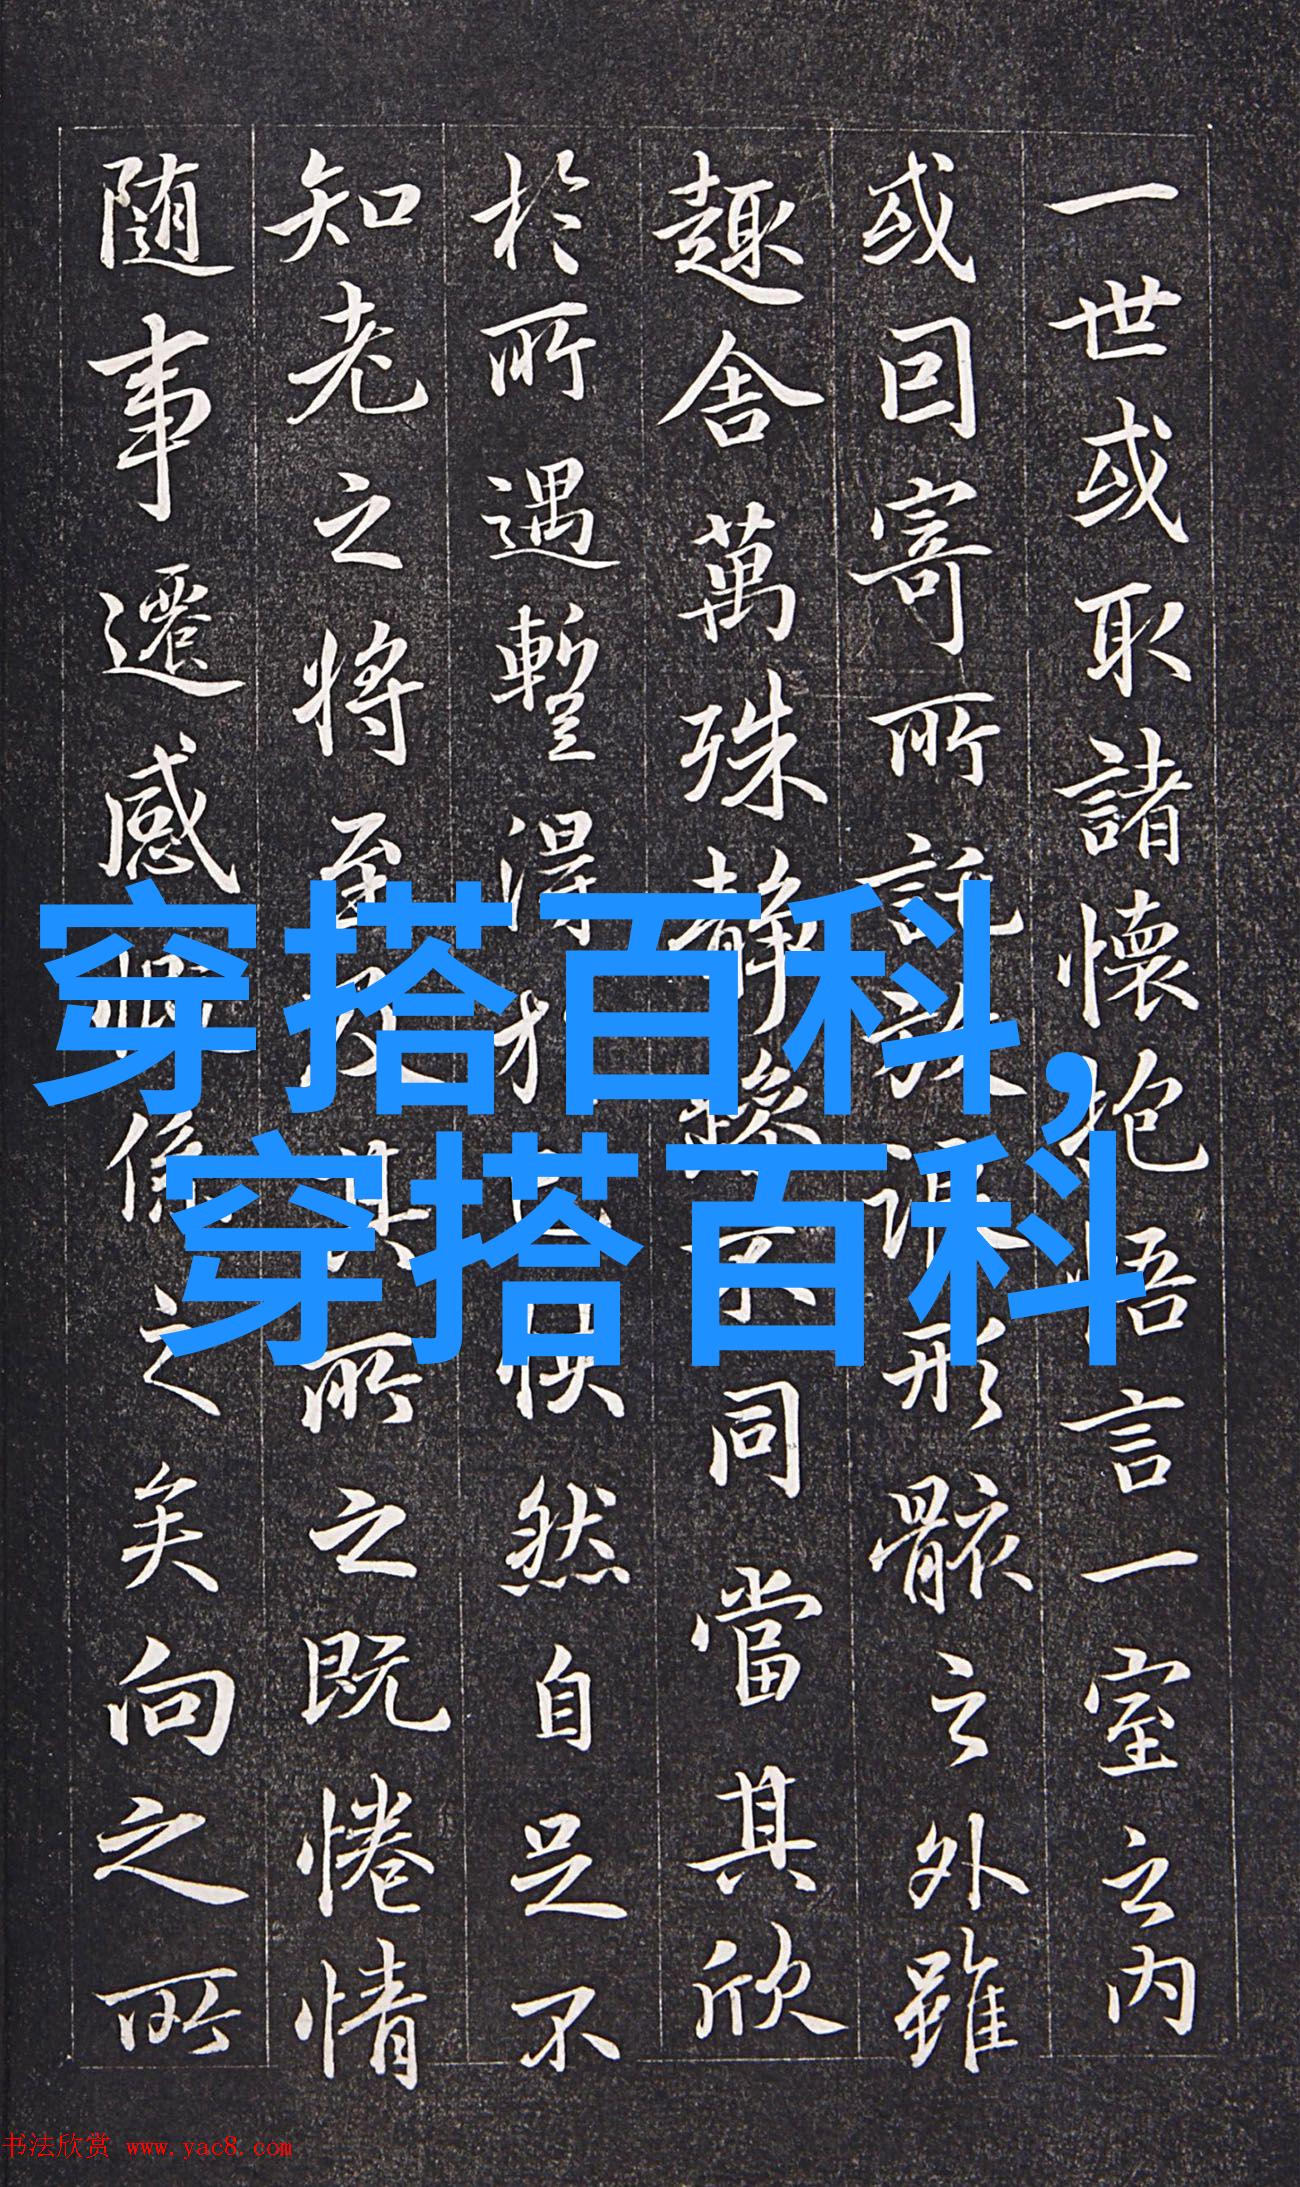 一世或取諸懷抱悟言一室之内
或因寄所託放浪形骸之外雖
趣舍萬殊静躁不同當其欣
於所遇蹔得於己怏然自足不
知老之將至及其所之既惓情
随事遷感慨係之矣向之所
穿搭百科,
穿搭百科
书法欣赏 www.yac8.com